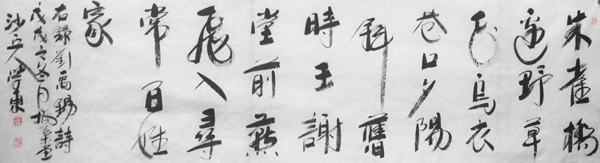 朱雀橋
邊野草
花烏衣
巷口夕陽
斜舊
時王謝
堂前燕
飛入尋
常百姓
家
右録劉禹錫詩
戊戌月
學東